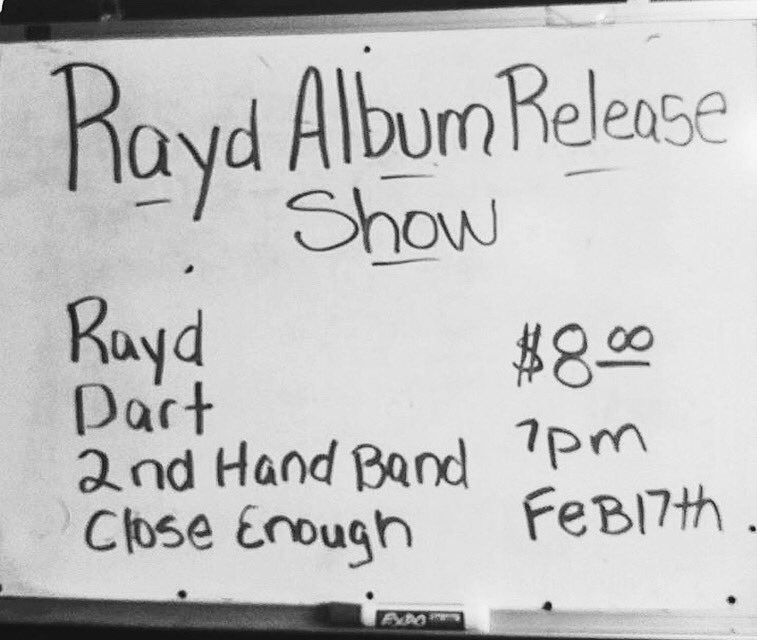 Rayd Album Release
Show
Rayd
Dart
2nd Hand Band
Close Enough
$8.00
7pm
FeB 17th
EXPO